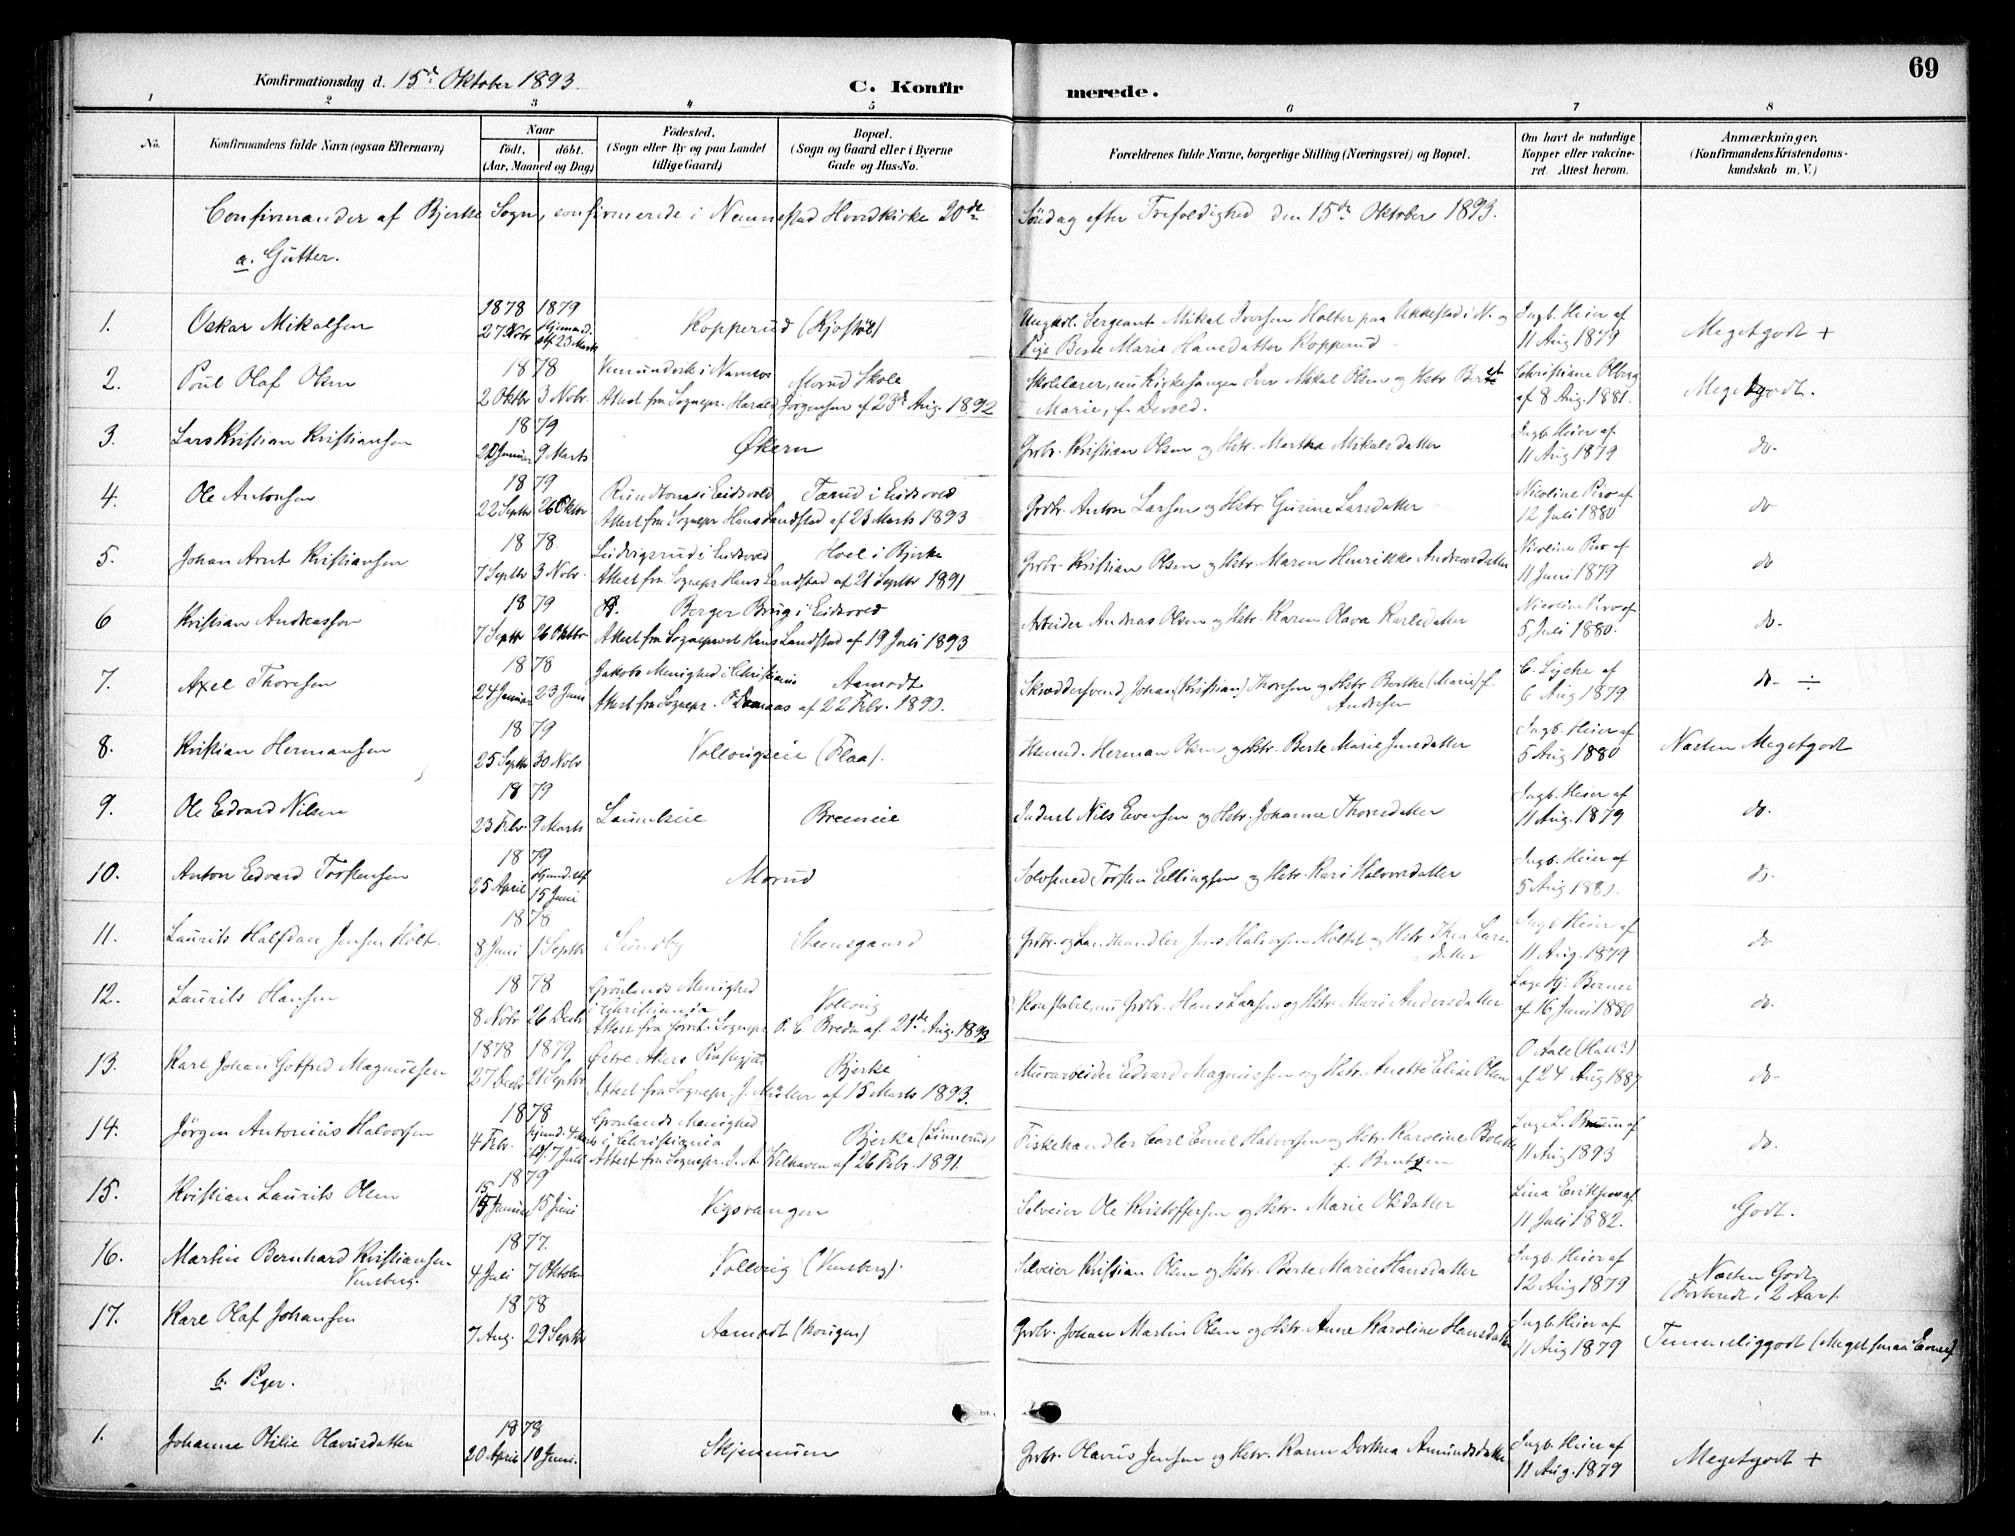 69
Konfirmationsdag d. 15de Oktober 1893.
C. Konfirmerede.
1 2 3 4 5 6 7 8
No. Konfirmandens fulde Navn (ogsaa Efternavn) Naar født. døbt. (Aar, Maaned og Dag) Födested. (Sogn eller By og paa Landet tillige Gaard) Bopæl. (Sogn og Gaard eller i Byerne Gade og Hus-No. Forældrenes fulde Navne, borgerlige Stilling (Næringsvei) og Bopæl. Om havt de naturlige Kopper eller vakcineret. Attest herom. Anmærkninger. (Konfirmandens Kristendomskundskab m. V.)
Confirmander af Bjerke Sogn, confirmerede i Nannestad Hovedkirke 20de Søndag efter Trefoldighed den 15de Oktober 1893.
a. Gutter.
1. Oskar Mikalsen 1878 27 Nobr 1879 23 Marts Kopperud (Kjos) Ungkl. Sergeant Mikal Iversen Holter paa Ukkestad i N. og Pige Berte Marie Hansdatter Kopperud. Ingb. Heier af 11 Aug 1879 Megetgodt +
2. Poul Olaf Olsen 1878 2 Oktbr 3 Nobr. i Namsos Morud Skole Attest fra Sognepr. Harald Jørgensen af 28de Aug. 1892 Skolelærer, nu Kirkesanger Iver Mikal Olsen og Hstr. Marie, f. Devold. Christiane af 8 Aug. 1881. Megetgodt.
3. Lars Kristian Kristiansen 1879 Januar 9 Marts Økern Grbr. Kristian Olsen og Hstr. Martha Mikalsdatter Ingb. Heier af 11 Aug 1879 do.
4. Ole Antonsen 1879 22 Septbr 26 Oktbr i Eidsvold Tærud i Eidsvold Attest fra Sognepr Hans Landstad af 23 Marts 1893 Grdbr. Anton Larsen og Hstr Gurine Larsdatter Nicoline Piro af 12 Juli 1880 do
5. Johan Arnt Kristiansen 1878 7 Septbr 3 Nobr. Ludvigsrud i Eidsvold Hoel i Bjerke Attest fra Sognepr Hans Landstad af 21 Septbr 1891 Grbr. Kristian Olsen og Hstr. Maren Henrikke Andreasdatter Nicoline Piro af 11 Juni 1879 do
6 Kristian Andreassen 1879 7 Septbr 26 Oktbr Berger Brug i Eidsvold Attest fra Sogneprest Hans Landstad af 19 Juli 1893 Arbeider Andreas Olsen og Hstr. Karen Olava Karlsdatter Nicoline Piro af 5 Juli 1880. do.
7. Axel Thoresen 1878 24 Januar 23 Juni Jakobs Menighed i Christiania Aamodt Attest fra Sognepr. af 22 Febr. 1890. Skræddersvend Johan (Kristian) Thoresen og Hstr Berthe (Marie) f. Andersen C. Lyche af 6 Aug 1879. do. ÷
8. Kristian Hermansen 1879 25 Septbr 30 Nobr Vollaugseie (Flaa). Husmd. Herman Olsen og Hstr. Berte Marie Jensdatter Ingb. Heier af 5 Aug 1880 Næsten Megetgodt
9. Ole Edvard Nilsen 1879 23 Febr. 9 Marts Inderst Nils Evensen og Hstr. Johanne Thoresdatter Ingb. Heier af 11 Aug. 1879 do.
10. Anton Edvard Torstensen 1879 25 April 15 Juni Morud Selveier Torsten Ellingsen og Hstr. Kari Halvorsdatter Ingb. Heier af 5 Aug 1880. do.
11. Laurits Halfdan Jensen Holt. 1878 8 Juni 1 Septbr Sundby Steensgaard Grdbr. og Landhandler Jens Halvorsen Holtet og Hstr. Thea Larsdatter Ingb Heier af 11 Aug. 1879 do
12. Laurits Hansen 1878 8 Nobr 26 Decbr Grønlands Menighed i Christiania Vollaug Attest fra forrt. Sognepr O. C. Bredu af 21de Aug. 1893 Konstabel, nu Grdbr. Hans Larsen og Hstr. Mari Andersdatter Læge Hj. Berner af 16 Juni 1880 do.
13. Karl Johan Gotfred Magnussen 1878 27 Decbr 1879 21 Septbr Østre Akers Præstegjæld Bjerke Attest fra Sognepr. J. Müller af 15 Marts 1893. Murarbeider Edvard Magnussen og Hstr. Anette Elise Olsen af 24 Aug 1887 do.
14. Jørgen Antonius Halvorsen 1878 4 Febr. 7 Juli Grønlands Menighed i Christiania Bjerke (Linnerud) Attest fra Sognepr. J. A. Welhaven af 26 Febr. 1891. Fiskehandler Carl Emil Halvorsen og Hstr. Karoline Bolette f. Bentzen Læge L. Bruun af 11 Aug 1893 do.
15. Kristian Laurits Olsen 1879 15 Januar 15 Juni Selveier Ole Kristoffersen og Hstr. Marie Olsdatter Lina Eriksen af 11 Juli 1882. Godt.
16. Martin Bernhard Kristiansen Vensberg. 1877. 4 Juli 7 Oktober Vollaug (Vensberg). Selveier Kristian Olsen og Hstr. Berte Marie Hansdatter Ingb. Heier af 12 Aug 1879 Næsten Godt (Forberedt i 2 Aar).
17. Karl Olaf Johansen 1878 7 Aug. 29 Septbr Aamodt Grbr. Johan Martin Olsen og Hstr. Anne Karoline Hansdatter Ingb. Heier af 11 Aug 1879 Temmeliggodt (Meget smaa Evner)
b. Piger.
1. Johanne Otilie Olavusdatter 1878 20 April 10 Juni. Skjennum Grbr. Olavus Jensen og Hstr. Karen Dorthea Amundsdatter Ingb. Heier af 11 Aug. 1879 Megetgodt +